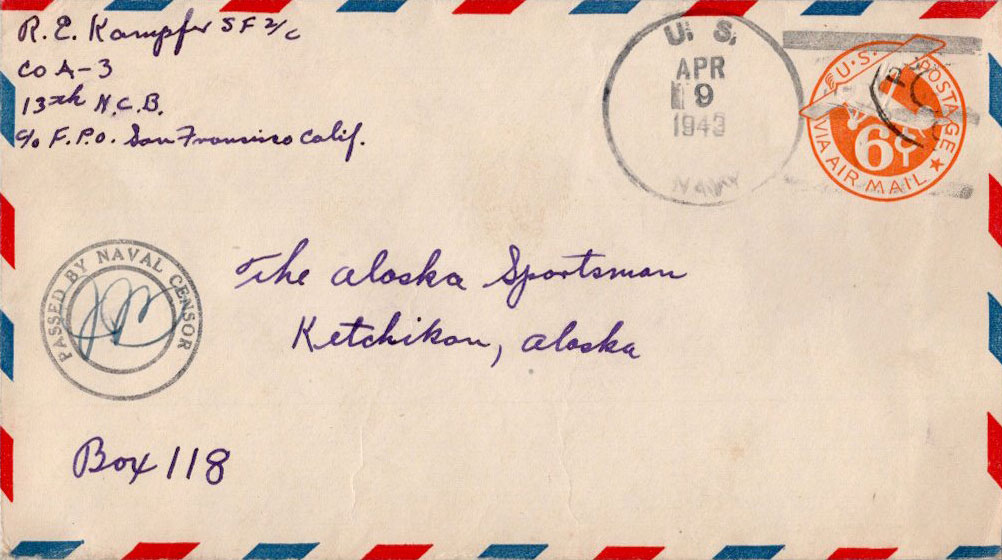 R. E. Kampfer S F 2/c
CO A-3
13th N.C.B.
c/o F.P.O. San Francisco Calif.
U. S.
APR
9
1943
NAVY
U.S. POSTAGE
6¢
VIA AIR MAIL
PASSED BY NAVAL CENSOR
The Alaska Sportsman
Ketchikan, Alaska
Box 118